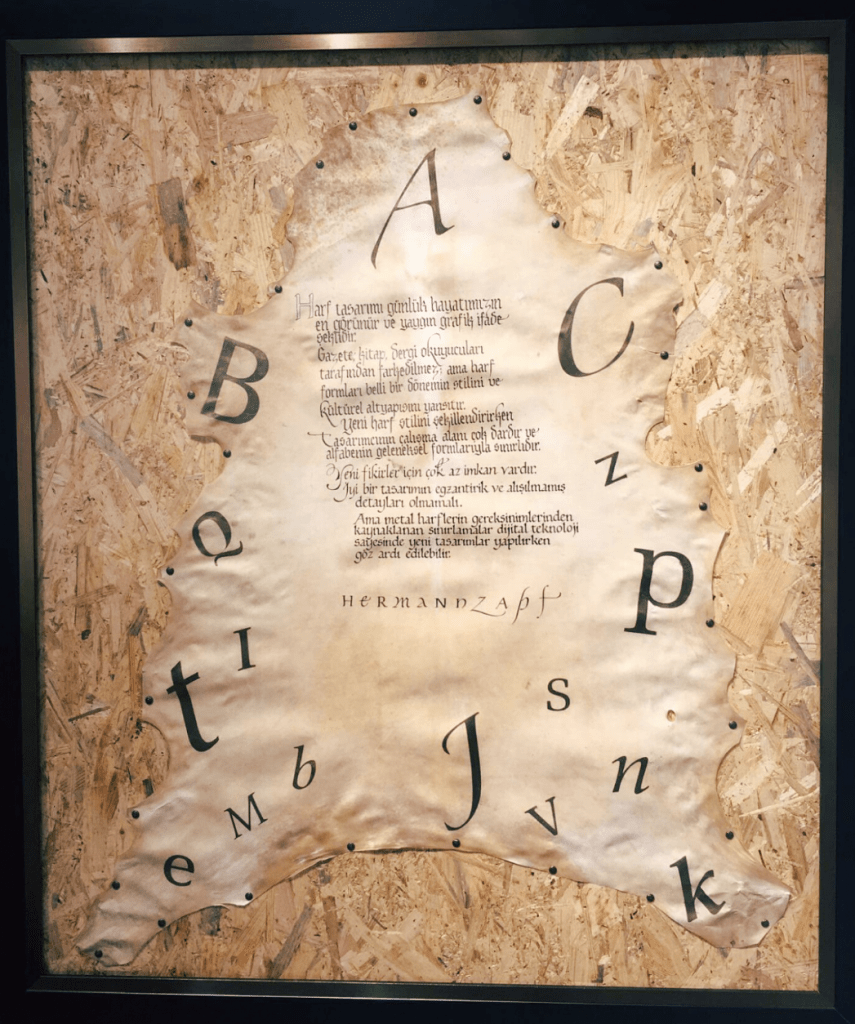 A
Harf tasarımı günlük hayatımızın
en görünür ve yaygın grafik ifade
şeklidir.
C
B
Gazete, kitap, dergi okuyucuları
tarafından farkedilmez; ama harf
formları belli bir dönemin stilini ve
kültürel altyapısını yansıtır.
Yeni harf stilini şekillendirirken
Tasarımcının çalışma alanı çok dardır ve
alfabenin geleneksel formlarıyla sınırlıdır.
z
Yeni fikirler için çok az imkan vardır.
İyi bir tasarımın egzantirik ve alışılmamış
detayları olmamalı.
Q
Ama metal harflerin gereksinimlerinden
kaynaklanan sınırlamalar dijital teknoloji
sayesinde yeni tasarımlar yapılırken
göz ardı edilebilir.
p
HERMANN ZAPF
I
t
s
J
b
n
M
V
e
k